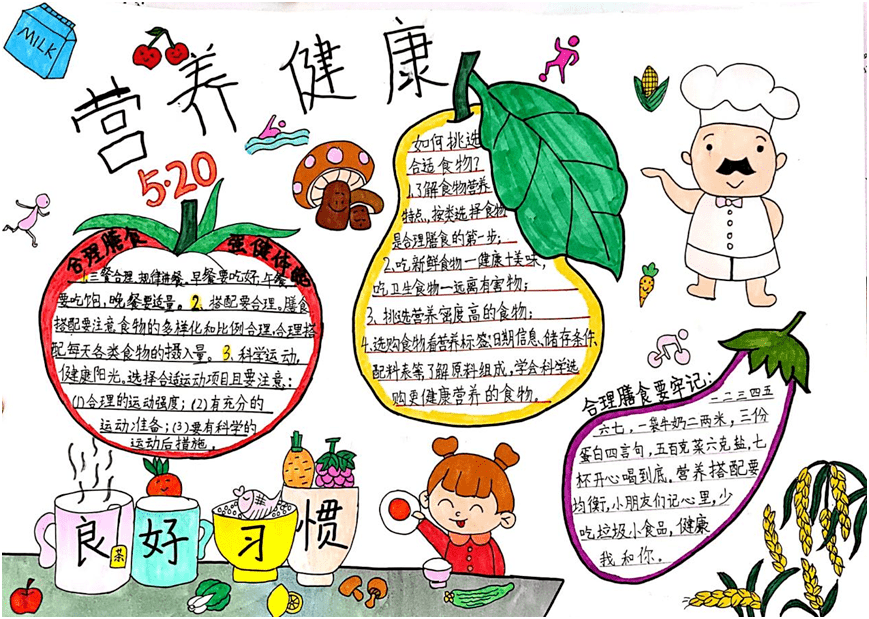 MILK
营养健康
5·20
合理膳食 强健体魄
1.三餐合理,规律进餐。早餐要吃好,午餐
要吃饱,晚餐要适量。2、搭配要合理。膳食
搭配要注意食物的多样化和比例合理,合理搭
配每天各类食物的摄入量。3.科学运动,
健康阳光。选择合适运动项目且要注意:
(1)合理的运动强度;(2)有充分的
运动准备;(3)要有科学的
运动后措施。
如何挑选
合适食物?
1.了解食物营养
特点,按类选择食物
是合理膳食的第一步;
2.吃新鲜食物一健康+美味,
吃卫生食物一远离有害物;
3.挑选营养密度高的食物;
4.选购食物看营养标签:日期信息、储存条件、
配料表等了解原料组成,学会科学选
购更健康营养的食物。
合理膳食要牢记:
一二三四五
六七,一袋牛奶二两米,三份
蛋白四言句,五百克菜六克盐,七
杯开心喝到底。营养搭配要
均衡,小朋友们记心里,少
吃垃圾小食品,健康
我和你。
良好习惯
茶